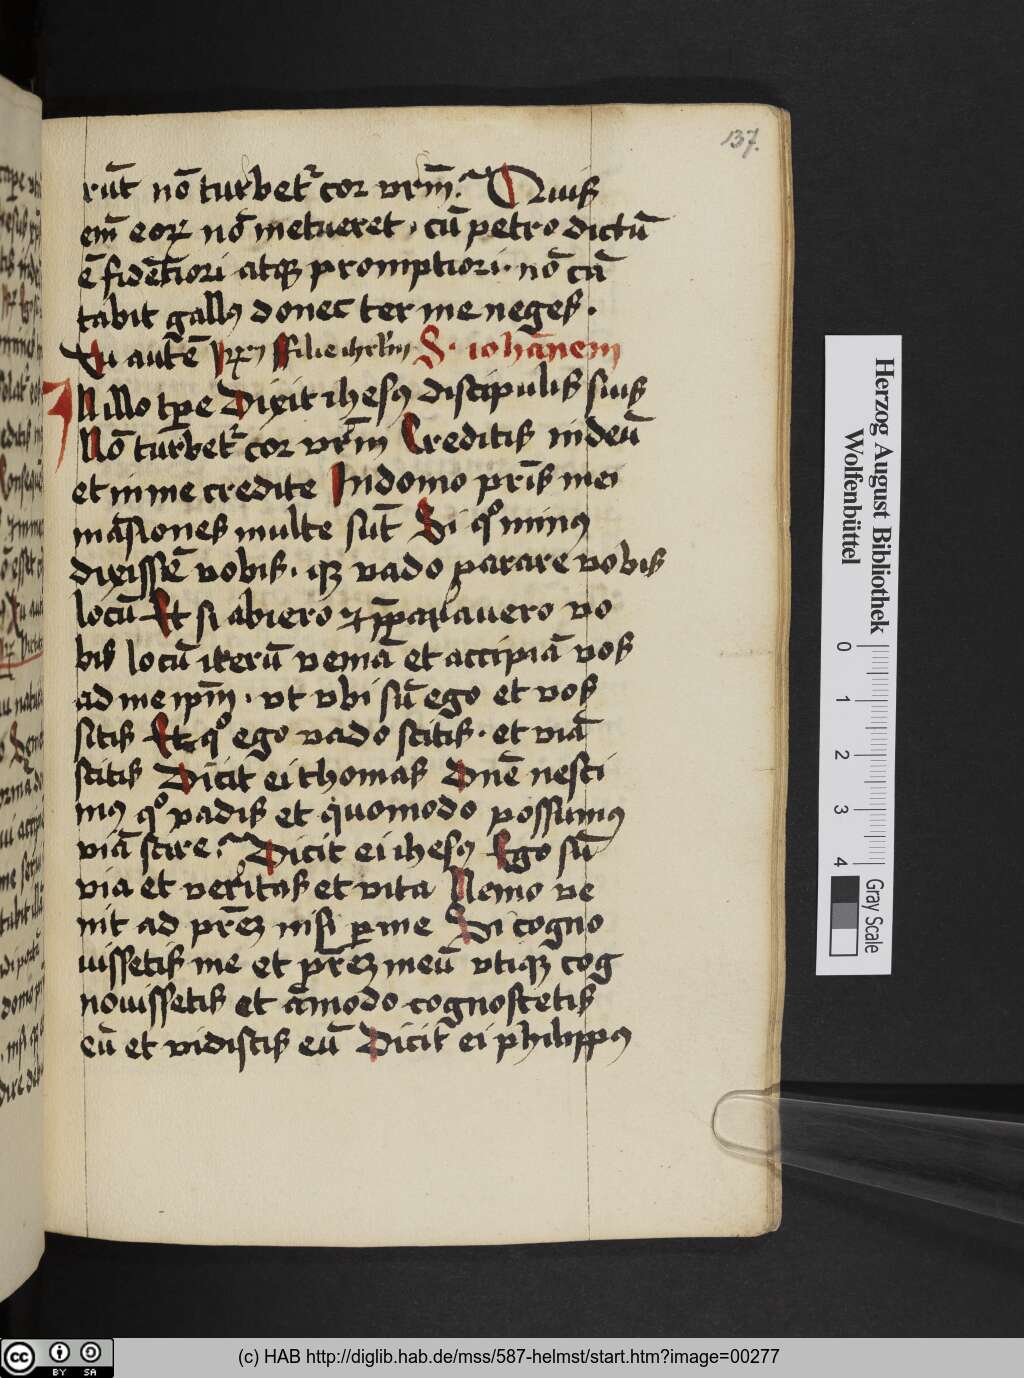 137.
rūt nō turbetr cor vrm̄. Quis
em̄ eoꝝ nō metueret · cū petro dictū
ē fidētiori atqꝫ promptiori · nō cā
tabit gallꝰ donec ter me neges ·
Tu autē xp̄e filie iherlm̄ S· iohānem
In illo tp̄e Dixit ihesꝰ discipulis suis
Nō turbetr cor vrm̄ Creditis in deū
et in me credite In domo pr̄is mei
māsiones multe sūt Si qo minꝰ
dixissē vobis · qꝫ vado parare vobis
locū Et si abiero et p̄parauero vo
bis locū iterū veniā et accipiā vos
ad me ip̄m · vt vbi sū ego et vos
sitis Et qo ego vado scitis · et viā
scitis Dicit ei thomas Dn̄e nesci
mꝰ qo vadis et quomodo possumꝰ
viā scire · Dicit ei ihesꝰ Ego sū
via et veritas et vita Nemo ve
nit ad pr̄eꝫ nisi ꝑ me Si cogno
uissetis me et pr̄eꝫ meū vtiqꝫ cog
nouissetis et āmodo cognoscetis
eū et vidistis eū Dicit ei philippꝰ
Herzog August Bibliothek
Wolfenbüttel
0 1 2 3 4
Gray Scale
cc BY SA
(c) HAB http://diglib.hab.de/mss/587-helmst/start.htm?image=00277